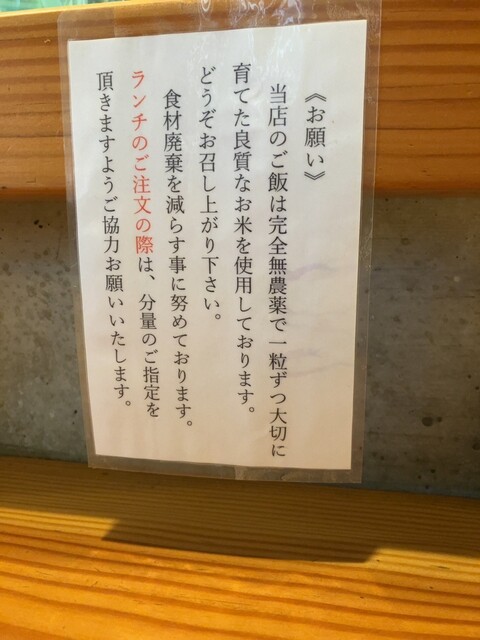 《お願い》
当店のご飯は完全無農薬で一粒ずつ大切に
育てた良質なお米を使用しております。
どうぞお召し上がり下さい。
食材廃棄を減らす事に努めております。
ランチのご注文の際は、分量のご指定を
頂きますようご協力お願いいたします。